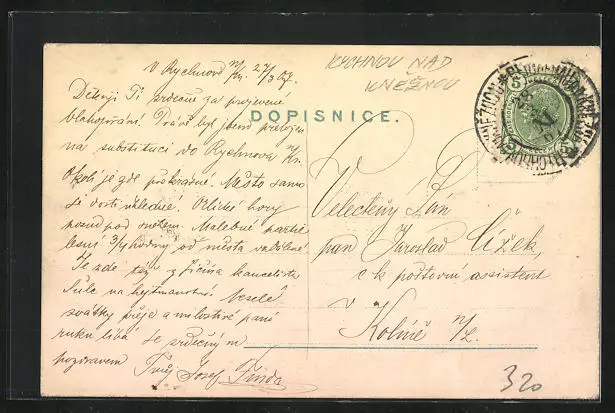 V Rychnově n/Kn. 27/3 07.
Děkuji Ti srdečně za projevené
blahopřání. Právě byl jsem přeložen
na substituci do Rychnova n/Kn.
Okolí je zde překrásné. Město samo
je dosti úhledné. Orlické hory
posud pod sněhem. Malebné partie
lesní 3/4 hodiny od města vzdálené.
Je zde též z Jičína kancelista
na hejtmanství. Veselé
svátky přeje a milostivé paní
ruku líbá se srdečným
pozdravem Tvůj Josef
RYCHNOV NAD
KNĚŽNOU
DOPISNICE.
5 5
Velectěný Pán
pan Jaroslav Čížek,
c k poštovní assistent
v
Kolíně n/L.
320